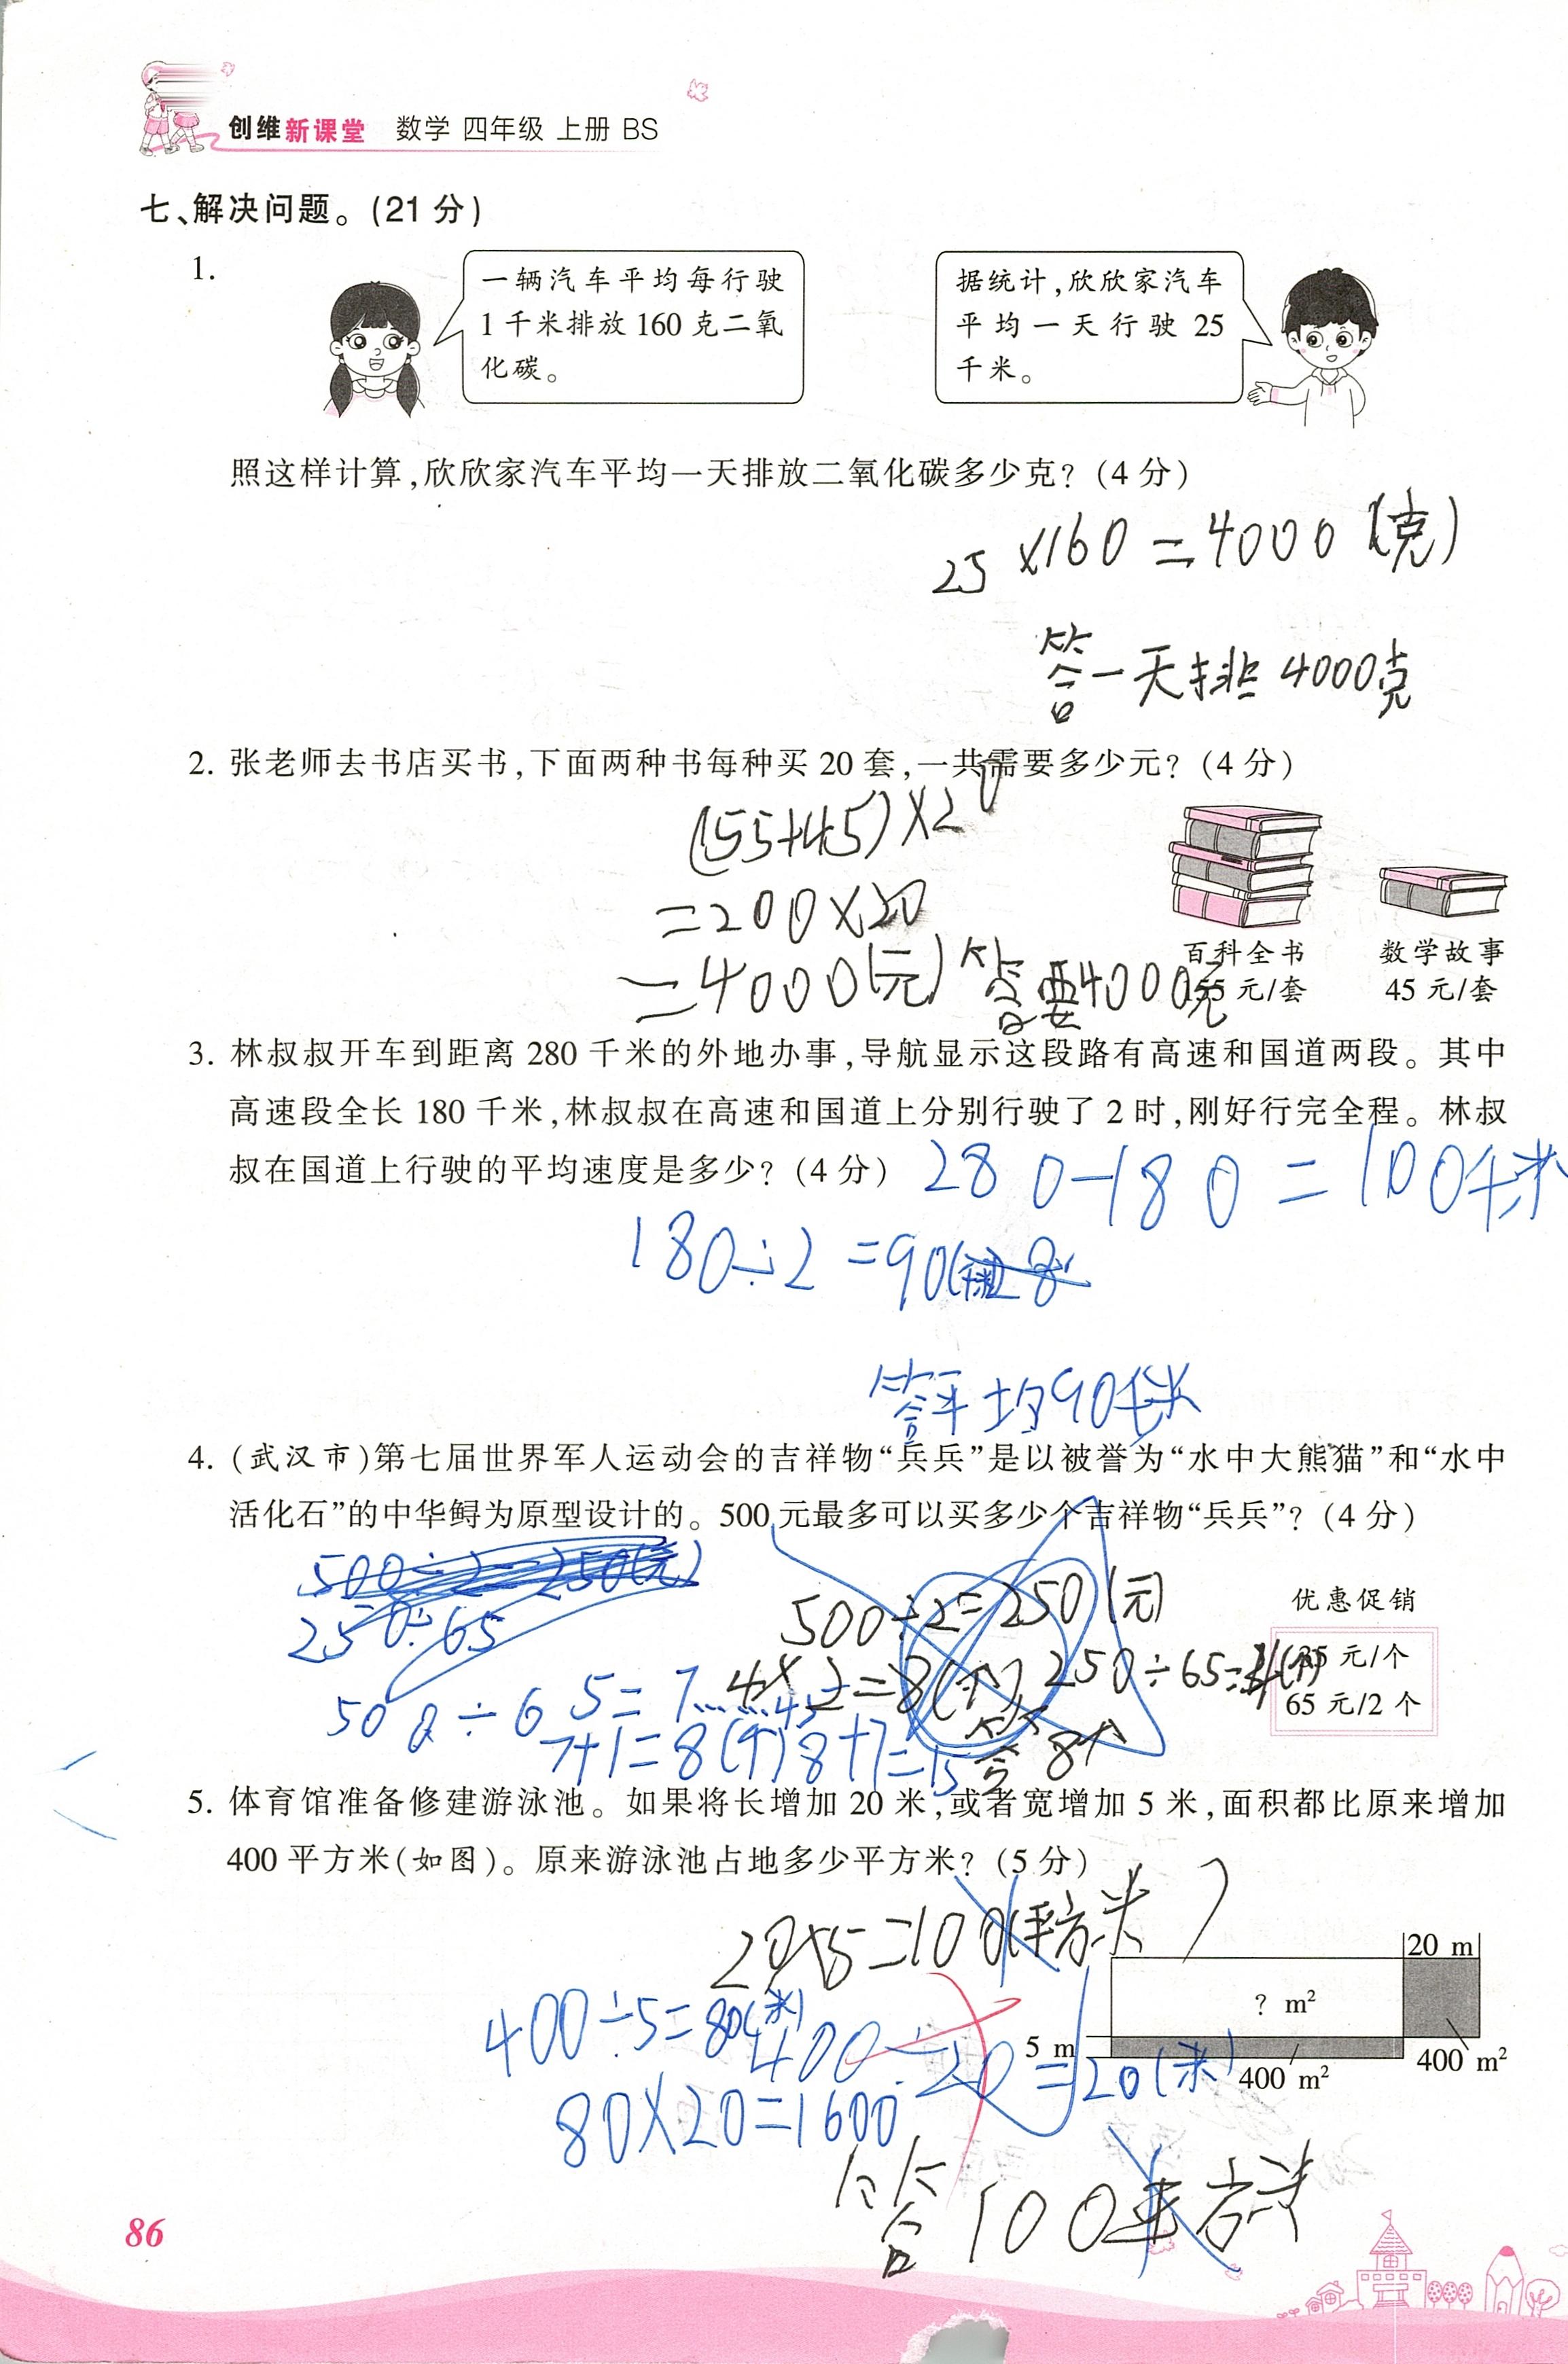 创维新课堂 数学 四年级 上册 BS
七、解决问题。(21 分)
1.
一辆汽车平均每行驶
1 千米排放 160 克二氧
化碳。
据统计,欣欣家汽车
平均一天行驶 25
千米。
照这样计算,欣欣家汽车平均一天排放二氧化碳多少克? (4 分)
25×160=4000(克)
答一天排4000克
2. 张老师去书店买书,下面两种书每种买 20 套,一共需要多少元? (4 分)
(155+45)×20
=200×20
=4000(元) 答要4000元
百科全书 数学故事
155 元/套 45 元/套
3. 林叔叔开车到距离 280 千米的外地办事,导航显示这段路有高速和国道两段。其中
高速段全长 180 千米,林叔叔在高速和国道上分别行驶了 2 时,刚好行完全程。林叔
叔在国道上行驶的平均速度是多少? (4 分)
280-180=100千米
180÷2=90
答平均90千米
4. (武汉市)第七届世界军人运动会的吉祥物“兵兵”是以被誉为“水中大熊猫”和“水中
活化石”的中华鲟为原型设计的。500 元最多可以买多少个吉祥物“兵兵”? (4 分)
500÷2=250(元)
250÷65
500÷2=250(元)
优惠促销
35 元/个
65 元/2 个
4×2=8(个) 250÷65=
500÷65=7……45
7+1=8(个) 8+7=15
答8个
5. 体育馆准备修建游泳池。如果将长增加 20 米,或者宽增加 5 米,面积都比原来增加
400 平方米(如图)。原来游泳池占地多少平方米? (5 分)
20×5=100(平方米
20 m
? m²
5 m
400 m²
400 m²
400÷5=80(米)
400÷20=20(米)
80×20=1600
答100平方米
86